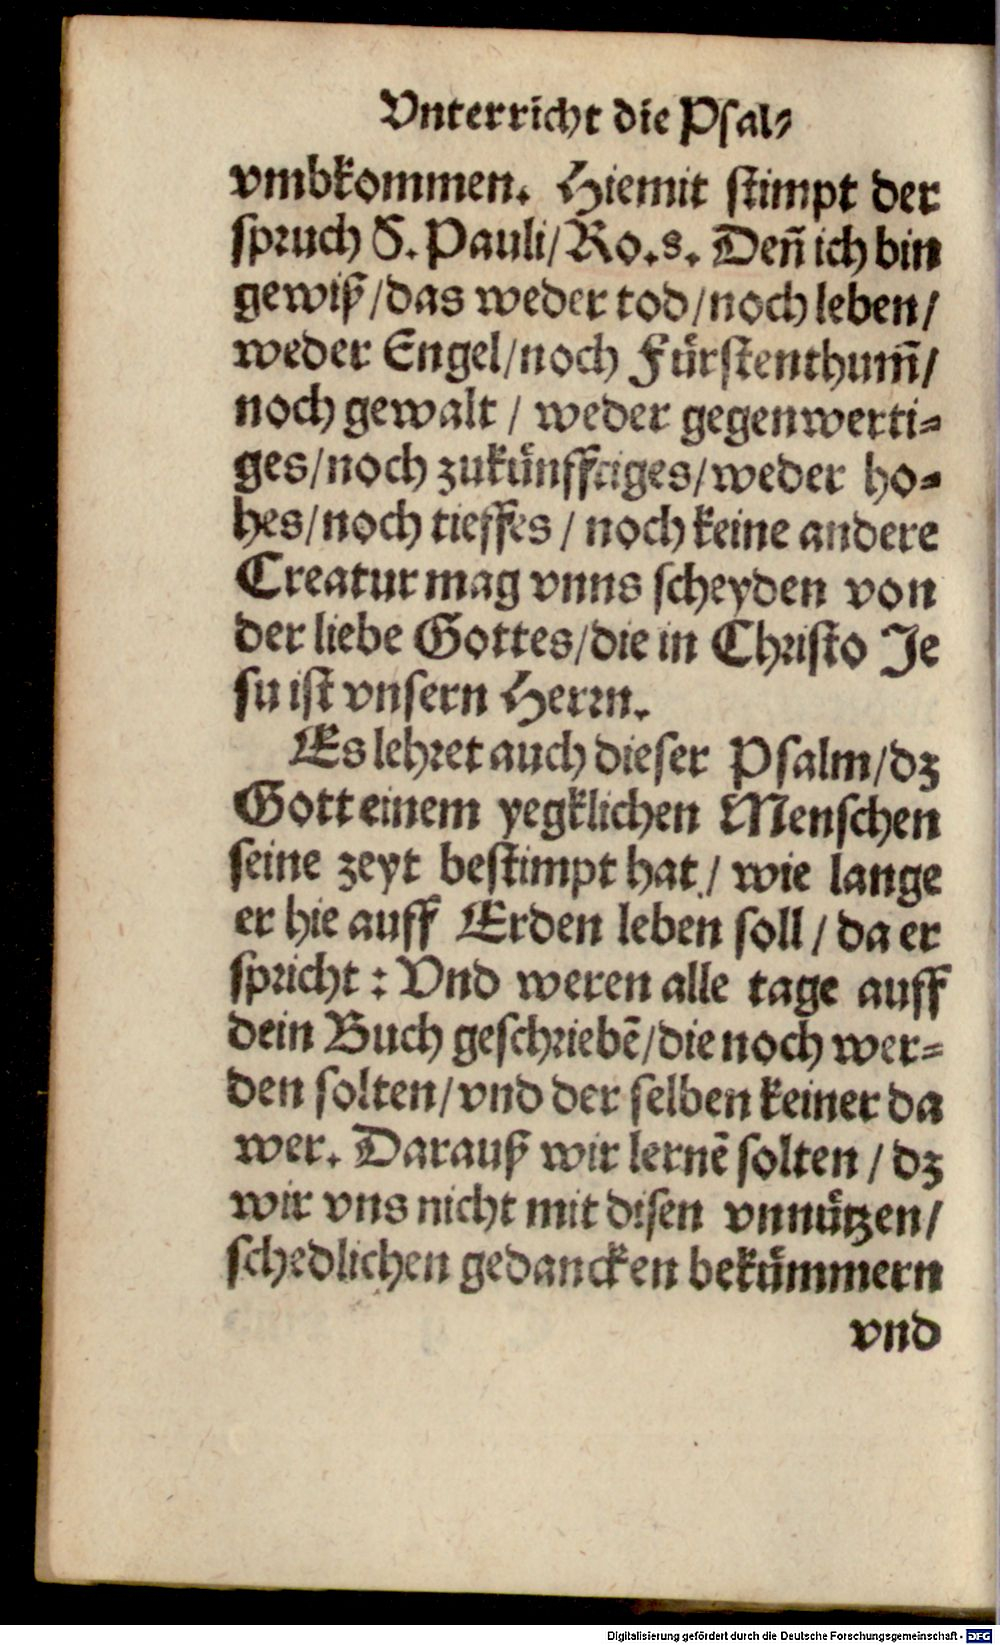 Vnterricht die Psal⸗
vmbkommen. Hiemit stimpt der
spruch S. Pauli/ Ro.s. Deñ ich bin
gewiß/das weder tod/noch leben/
weder Engel/noch Fuͤrstenthum̃/
noch gewalt / weder gegenwerti⸗
ges/noch zukuͤnfftiges/weder ho⸗
hes/noch tieffes / noch keine andere
Creatur mag vnns scheyden von
der liebe Gottes/die in Christo Je
su ist vnsern Herrn.
Es lehret auch dieser Psalm/dz
Gott einem yegklichen Menschen
seine zeyt bestimpt hat / wie lange
er hie auff Erden leben soll / da er
spricht : Vnd weren alle tage auff
dein Buch geschriebẽ/die noch wer⸗
den solten/vnd der selben keiner da
wer. Darauß wir lernẽ solten / dz
wir vns nicht mit disen vnnuͤtzen/
schedlichen gedancken bekuͤmmern
vnd
Digitalisierung gefördert durch die Deutsche Forschungsgemeinschaft - DFG